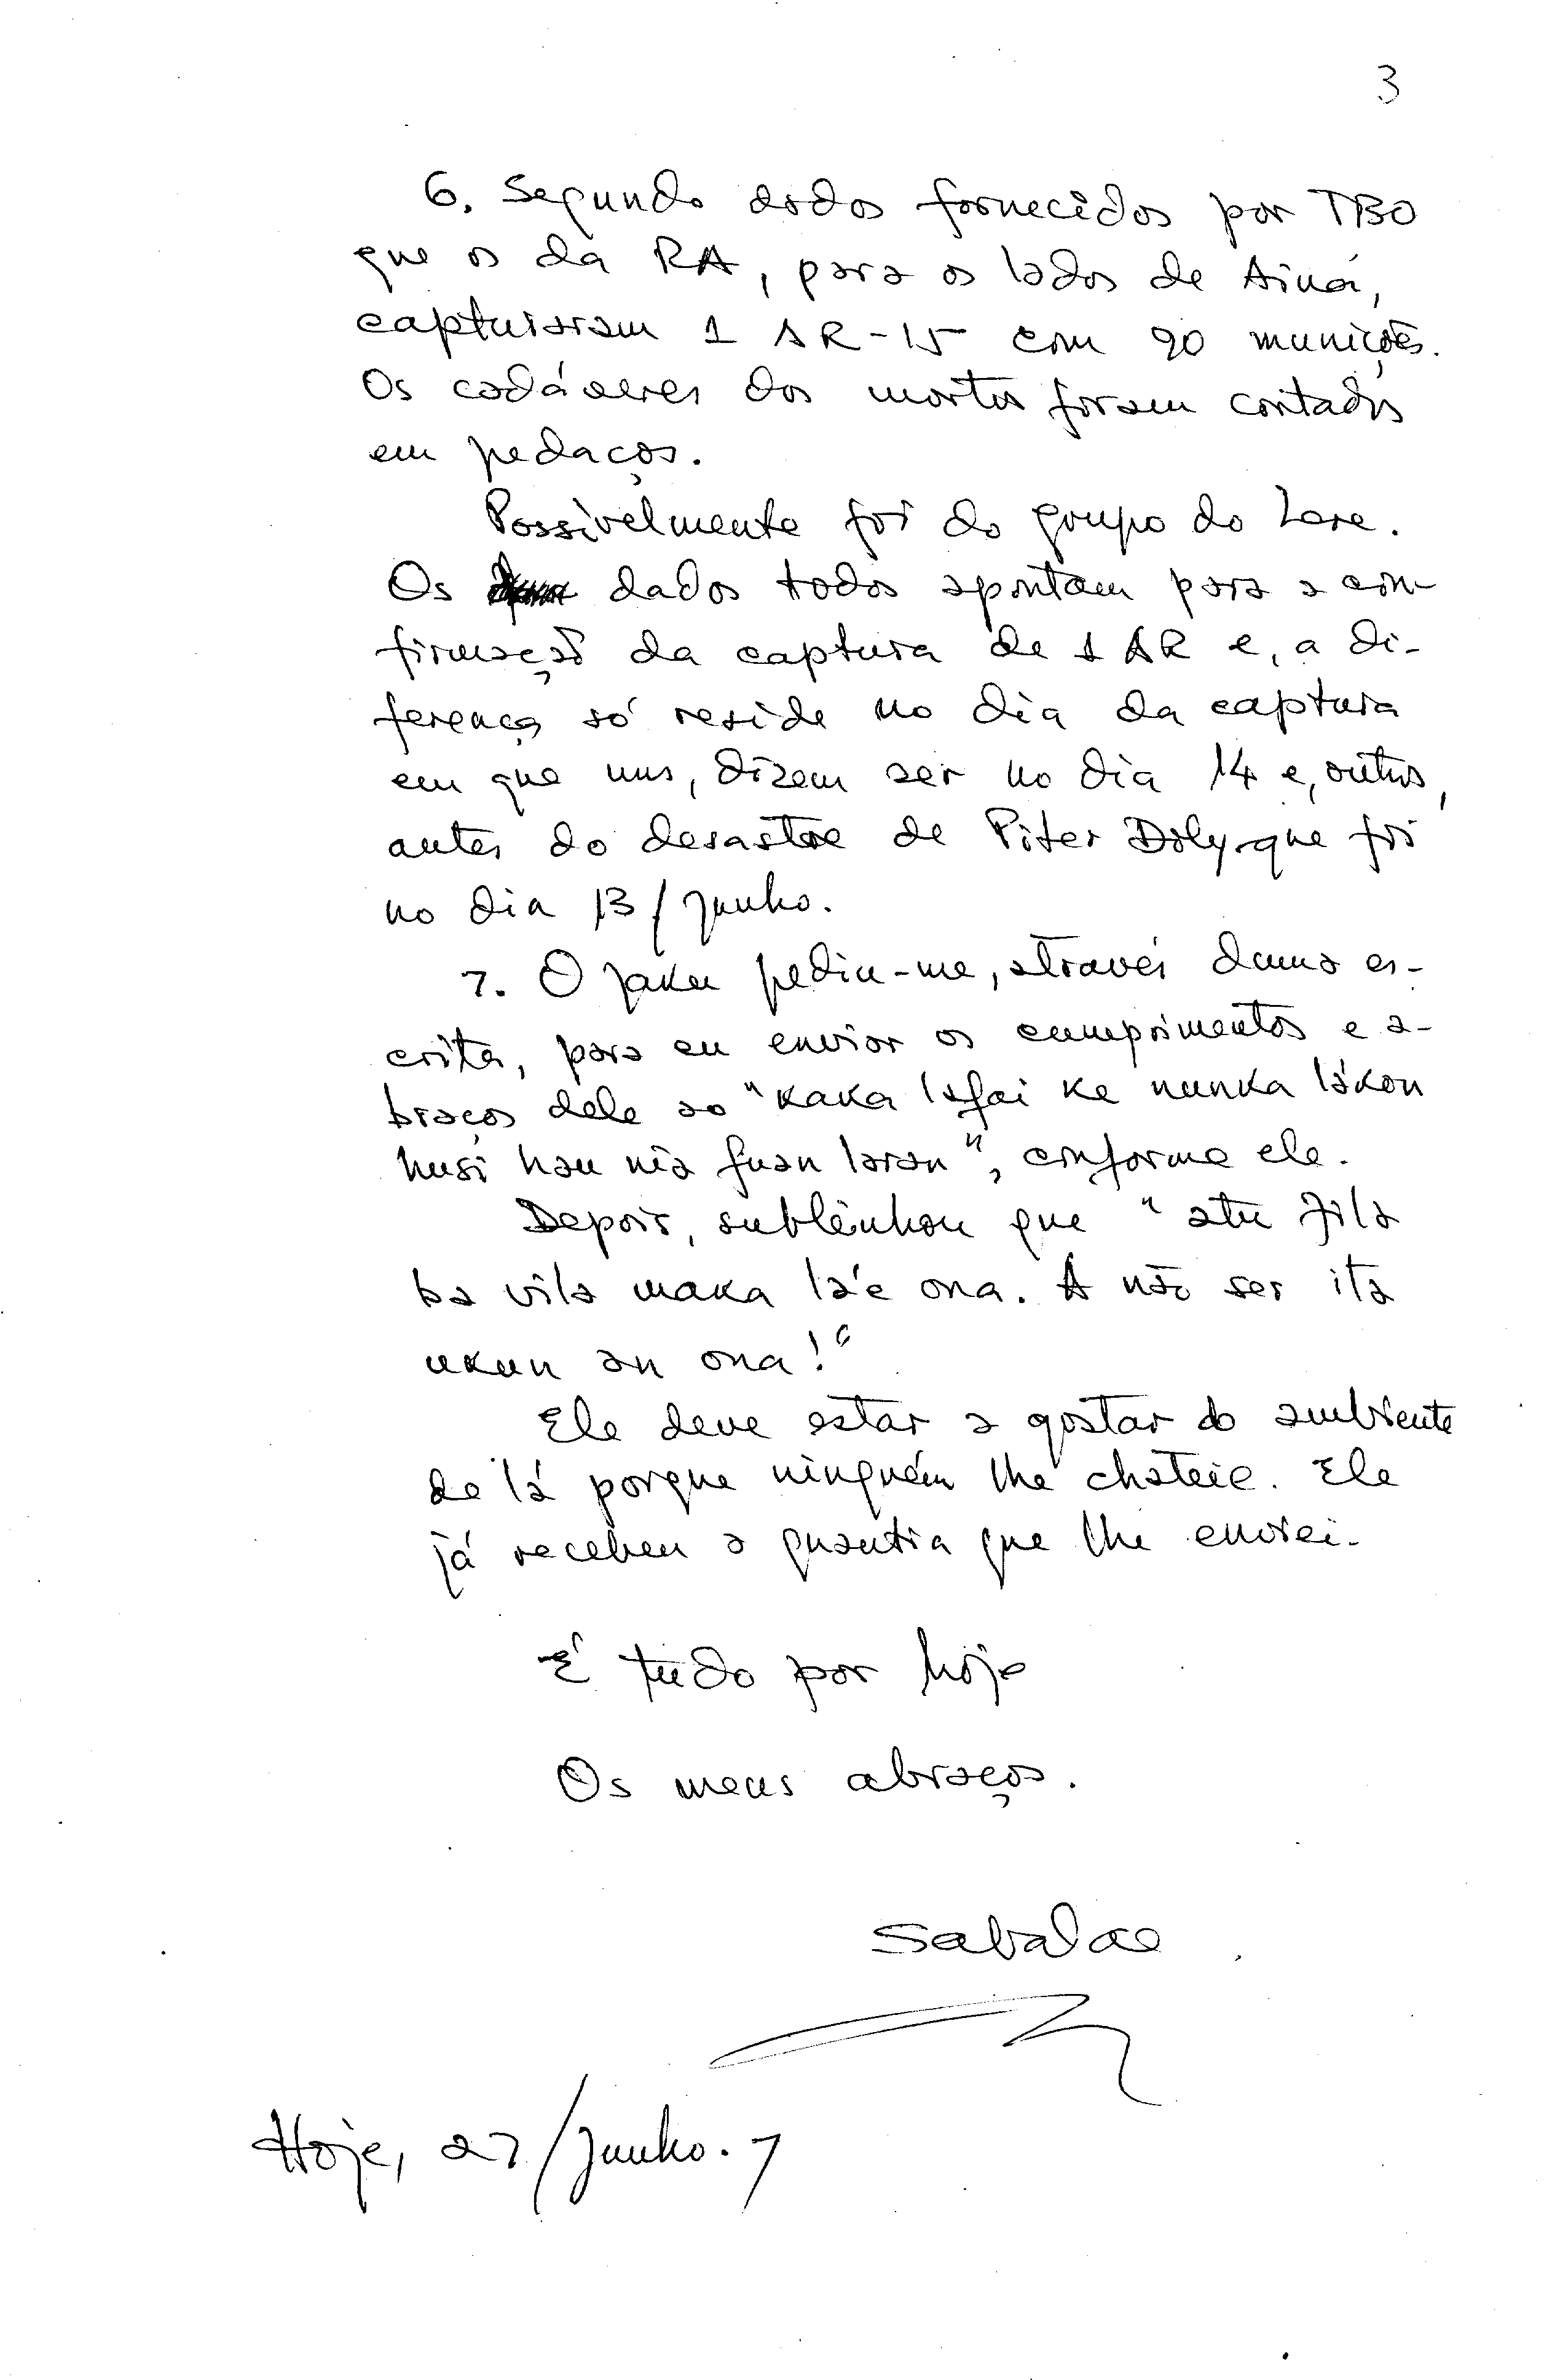 3
6. Segundo dados fornecidos por TBO
que os da RA, para os lados de Ainá,
capturaram 1 AR-15 com 90 munições.
Os cadáveres dos mortos foram contados
em pedaços.
Possivelmente foi do grupo do Lere.
Os dados todos apontam para a con-
firmação da captura de 1 AR e, a di-
ferença só reside no dia da captura
em que uns, dizem ser no dia 14 e, outros,
antes do desastre de Piter Doly que foi
no dia 13/junho.
7. O Jaku pediu-me, através duma es-
crita, para eu enviar os cumprimentos e a-
braços dele ao "Kaka lafai ke nunka lákon
husi hau nia fuan laran", conforme ele.
Depois, sublinhou que "atu fila
ba vila maka la'e ona. A não ser ita
ukun an ona!"
Ele deve estar a gostar do ambiente
de lá porque ninguém lhe chateie. Ele
já recebeu a quantia que lhe enviei.
É tudo por hoje
Os meus abraços.
Sabalae
Hoje, 27/Junho.7